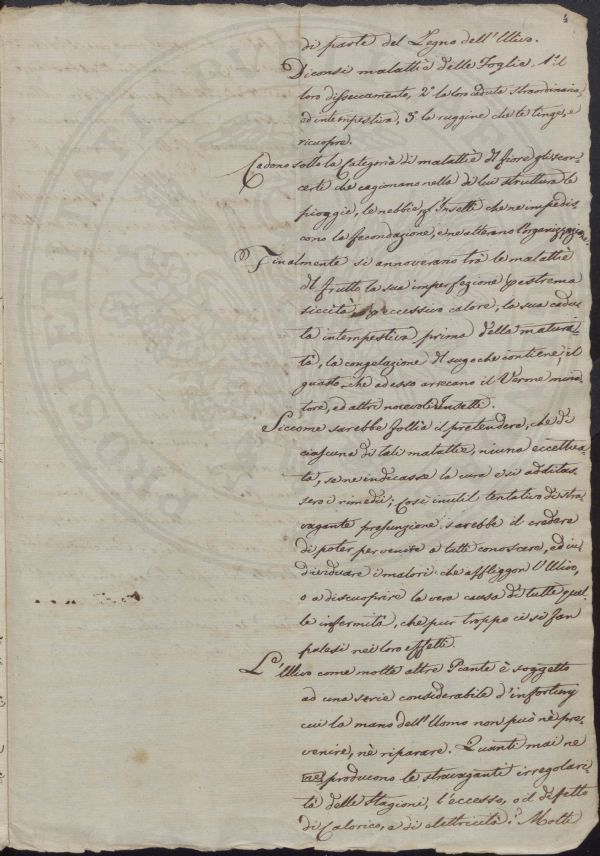 4
di parte del Legno dell'Ulivo.
Diconsi malattie delle Foglie, 1.° il
loro disseccamento, 2.° la loro caduta straordinaria,
ed intempestiva, 3.° la ruggine che le tinge, e
ricuopre.
Cadono sotto la Categoria di malattie del fiore gli scon-
certi che cagionano nella di lui struttura le
pioggie, le nebbie, gl'Insetti che ne impedis
cono la fecondazione, e ne alterano l'organizzazione.
Finalmente si annoverano tra le malattie
del frutto la sua imperfezione p estrema
siccità, p eccessivo calore, la sua cadu-
ta intempestiva prima della maturi-
tà, la congelazione del sugo che contiene, il
guasto, che ad esso arrecano il Verme mina
tore, ed altri nocevoli Insetti.
Siccome sarebbe follia il pretendere, che di
ciascuna di tali malattie, niuna eccettua-
ta, se ne indicasse la cura e si additas
sero i rimedii; così inutil tentativo di stra-
vagante presunzione sarebbe il credere
di poter pervenire a tutti conoscere, ed in-
dividuare i malori che affliggon l'Ulivo,
o a discuoprire la vera causa di tutte quel
le infermità, che pur troppo ci si fan
palesi nei loro effetti.
L'Ulivo come molte altre Piante è soggetto
ad una serie considerabile d'infortunj
cui la mano dell'Uomo non può nè pre-
venire, nè riparare. Quanti mai ne
ne producono le stravaganti irregolari-
tà delle stagioni, l'eccesso, o il difetto
di Calorico, e di elettricità? Molte